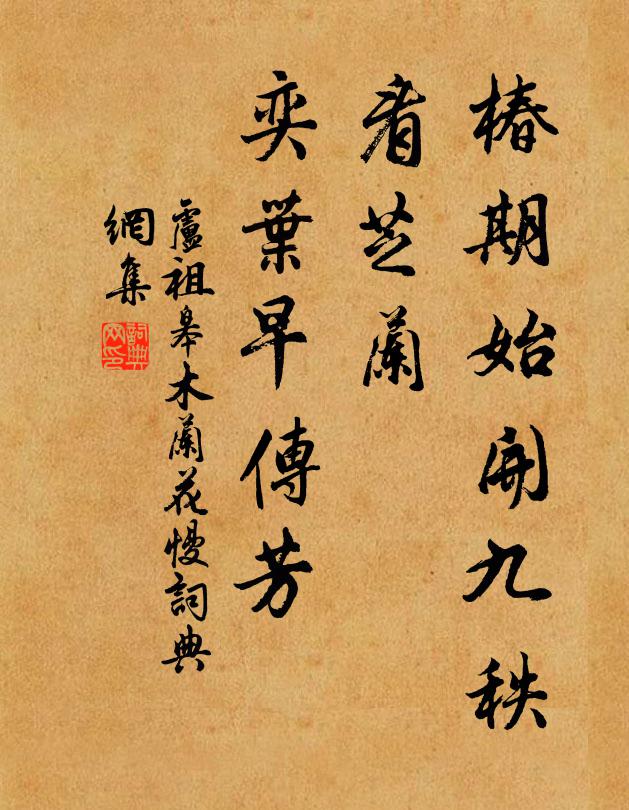 椿期始開九秩
看芝蘭
奕葉早傳芳
盧祖皋木蘭花慢詞典
網集
詞典網印